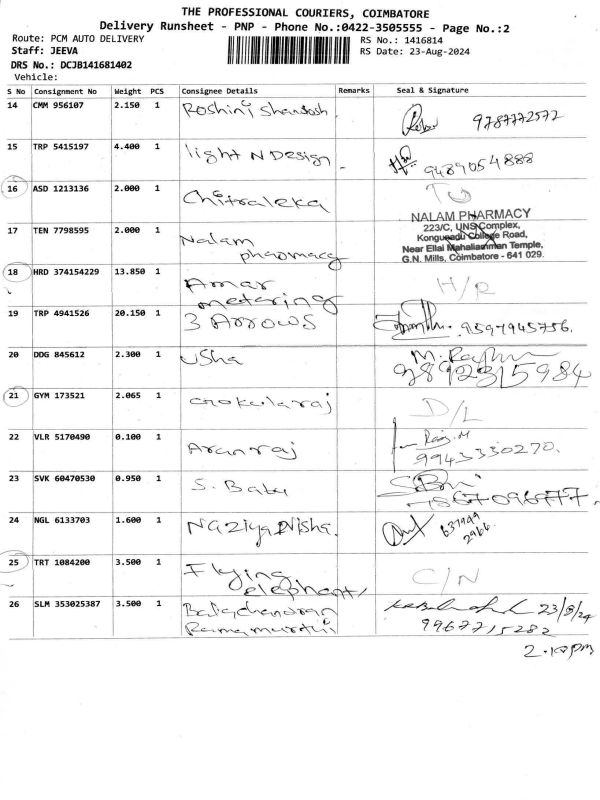 THE PROFESSIONAL COURIERS, COIMBATORE
Delivery Runsheet - PNP - Phone No.:0422-3505555 - Page No.:2
Route: PCM AUTO DELIVERY
RS No.: 1416814
Staff: JEEVA
RS Date: 23-Aug-2024
DRS No.: DCJB141681402
Vehicle:
S No Consignment No Weight PCS Consignee Details Remarks Seal & Signature
14 CMM 956107 2.150 1 Roshini Shandosh 9787772572
15 TRP 5415197 4.400 1 light N Design 9489054888
16 ASD 1213136 2.000 1 Chitraleka
17 TEN 7798595 2.000 1 Nalam pharmacy
NALAM PHARMACY
223/C, UNS Complex,
Kongunadu College Road,
Near Ellai Mahaliamman Temple,
G.N. Mills, Coimbatore - 641 029.
18 HRD 374154229 13.850 1 Amar metering H/R
19 TRP 4941526 20.150 1 3 Arrows 9597945756.
20 DDG 845612 2.300 1 Usha 9892315984
21 GYM 173521 2.065 1 Gokulraj D/L
22 VLR 5170490 0.100 1 Aranraj 9943330270.
23 SVK 60470530 0.950 1 S. Babu 7867096977.
24 NGL 6133703 1.600 1 Naziya Nisha. 637999 2966
25 TRT 1084200 3.500 1 Flying elephant C/N
26 SLM 353025387 3.500 1 Balachandran Ramamurthi 23/8/24
9967715282
2.10pm